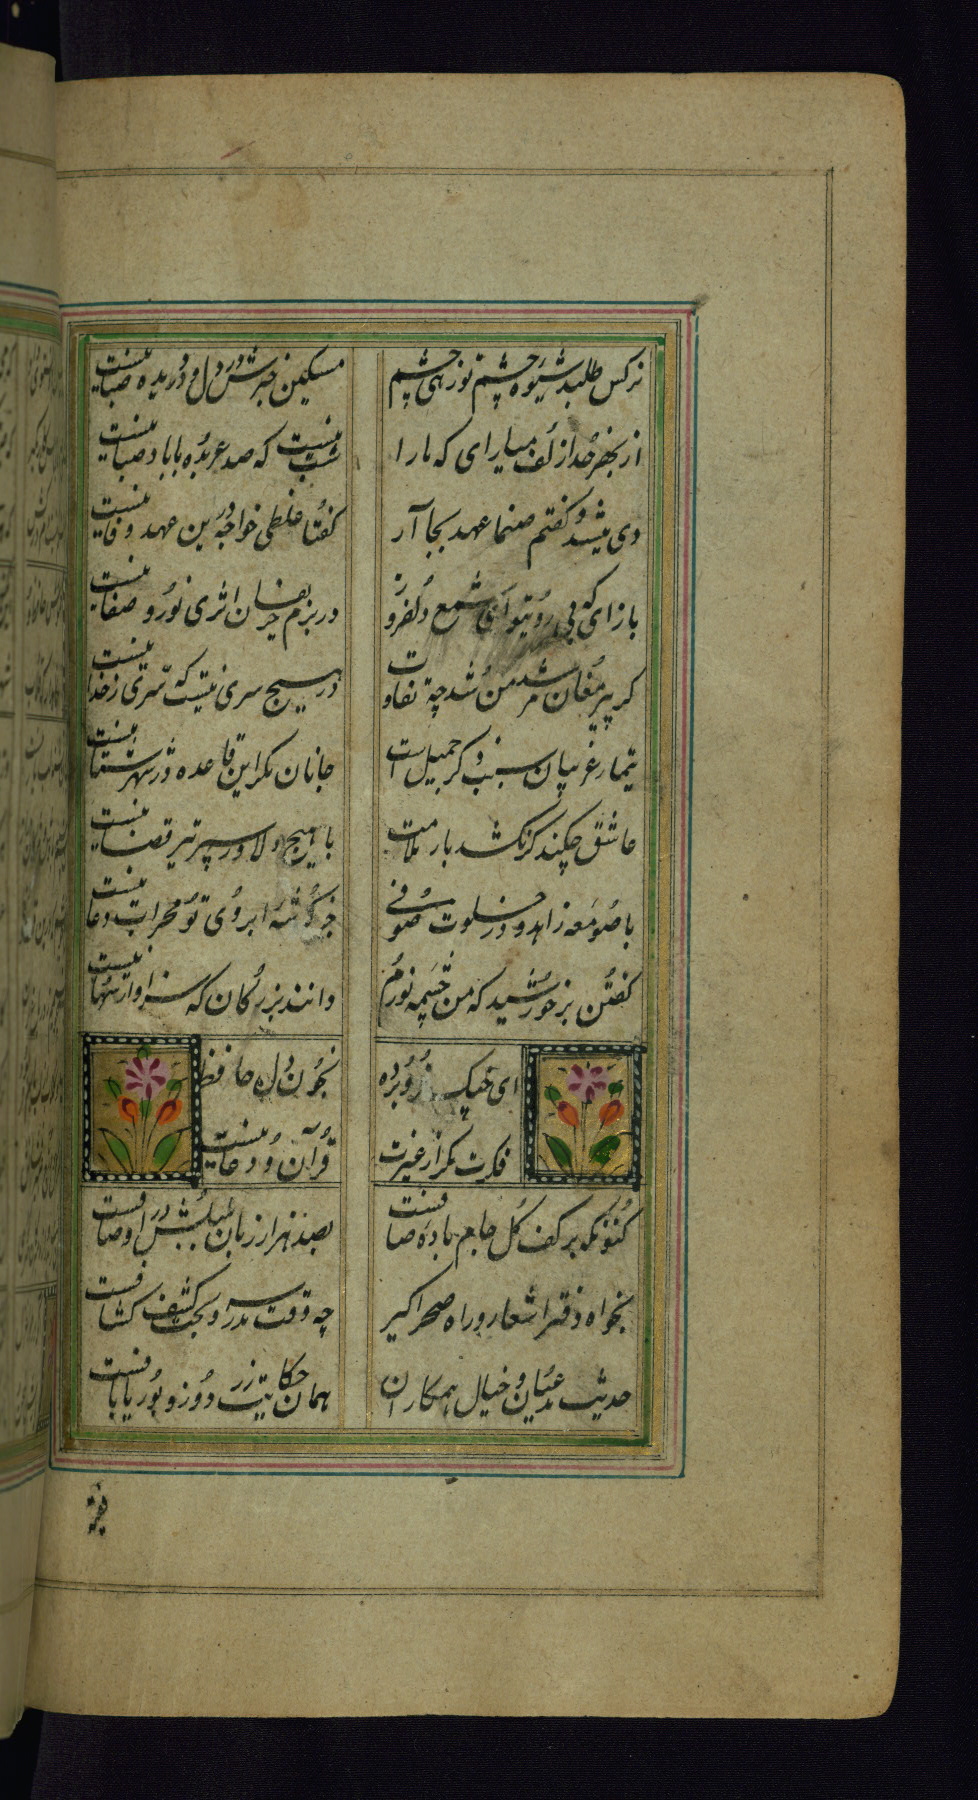 نرکس طلبد شیوه چشم تو زهی چشم
مسکین خبرش در دل و در دیده ضیا نیست
از بهر خدا زلف میارای که ما را
شب نیست که صد عربده با باد صبا نیست
دی میشد و کفتم صنما عهد بجا آر
کفتا غلطی خواجه درین عهد وفا نیست
بازای که بی رویتو ای شمع دلفروز
در بزم حریفان اثری نور و صفا نیست
کر پیر مغان مرشد من شد چه تفاوت
در هیچ سری نیست که سری زخدا نیست
تیمار غریبان سبب ذکر جمیل است
جانان مکر این قاعده در شهر شما نیست
عاشق چکند کر نکشد بار ملامت
با هیچ دلاور سپر تیر قضا نیست
با صومعه زاهد و در خلوت صوفی
جز کوشه ابروی تو محراب دعا نیست
کفتن بر خورشید که من چشمه نورم
دانند بزرکان که سزاوار سها نیست
ای چنک فرو برده
بخون دل حافظ
فکرت مکر از غیرت
قرآن و دعا نیست
کنونکه بر کف کل جام باده صافست
بصد هزار زبان بلبلش در اوصافست
بخواه دفتر اشعار و راه صحرا کیر
چه وقت مدرس و بحث کشف کشافست
حدیث مدعیان و خیال همکاران
همان حکایت زر دوز و بوریا بافست
فقیه